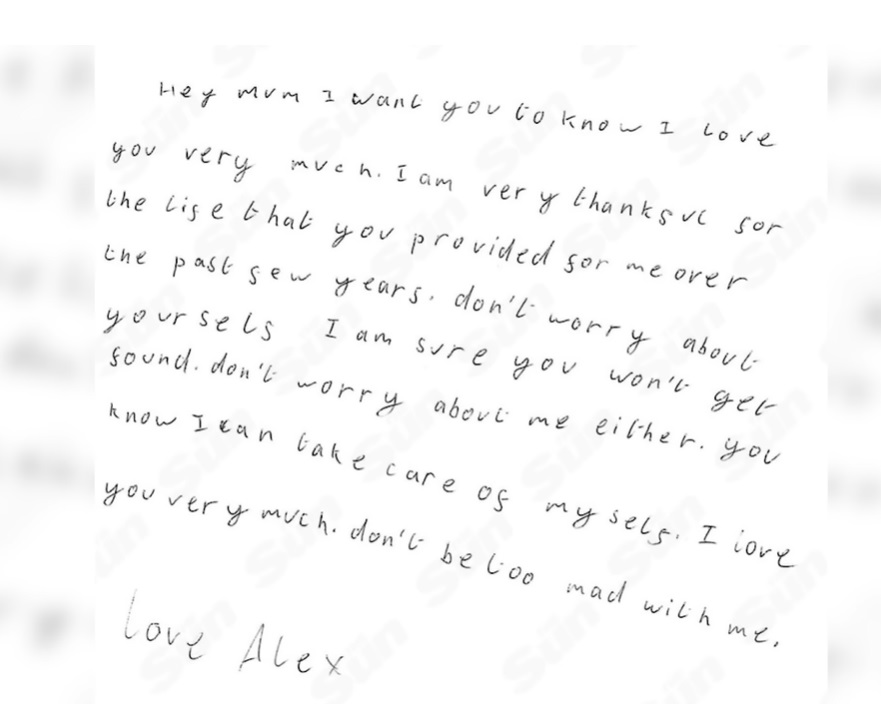 Hey mum I want you to know I love
you very much. I am very thankful for
the life that you provided for me over
the past few years. don't worry about
yourself I am sure you won't get
found. don't worry about me either. you
know I can take care of myself. I love
you very much. don't be too mad with me.
Love Alex